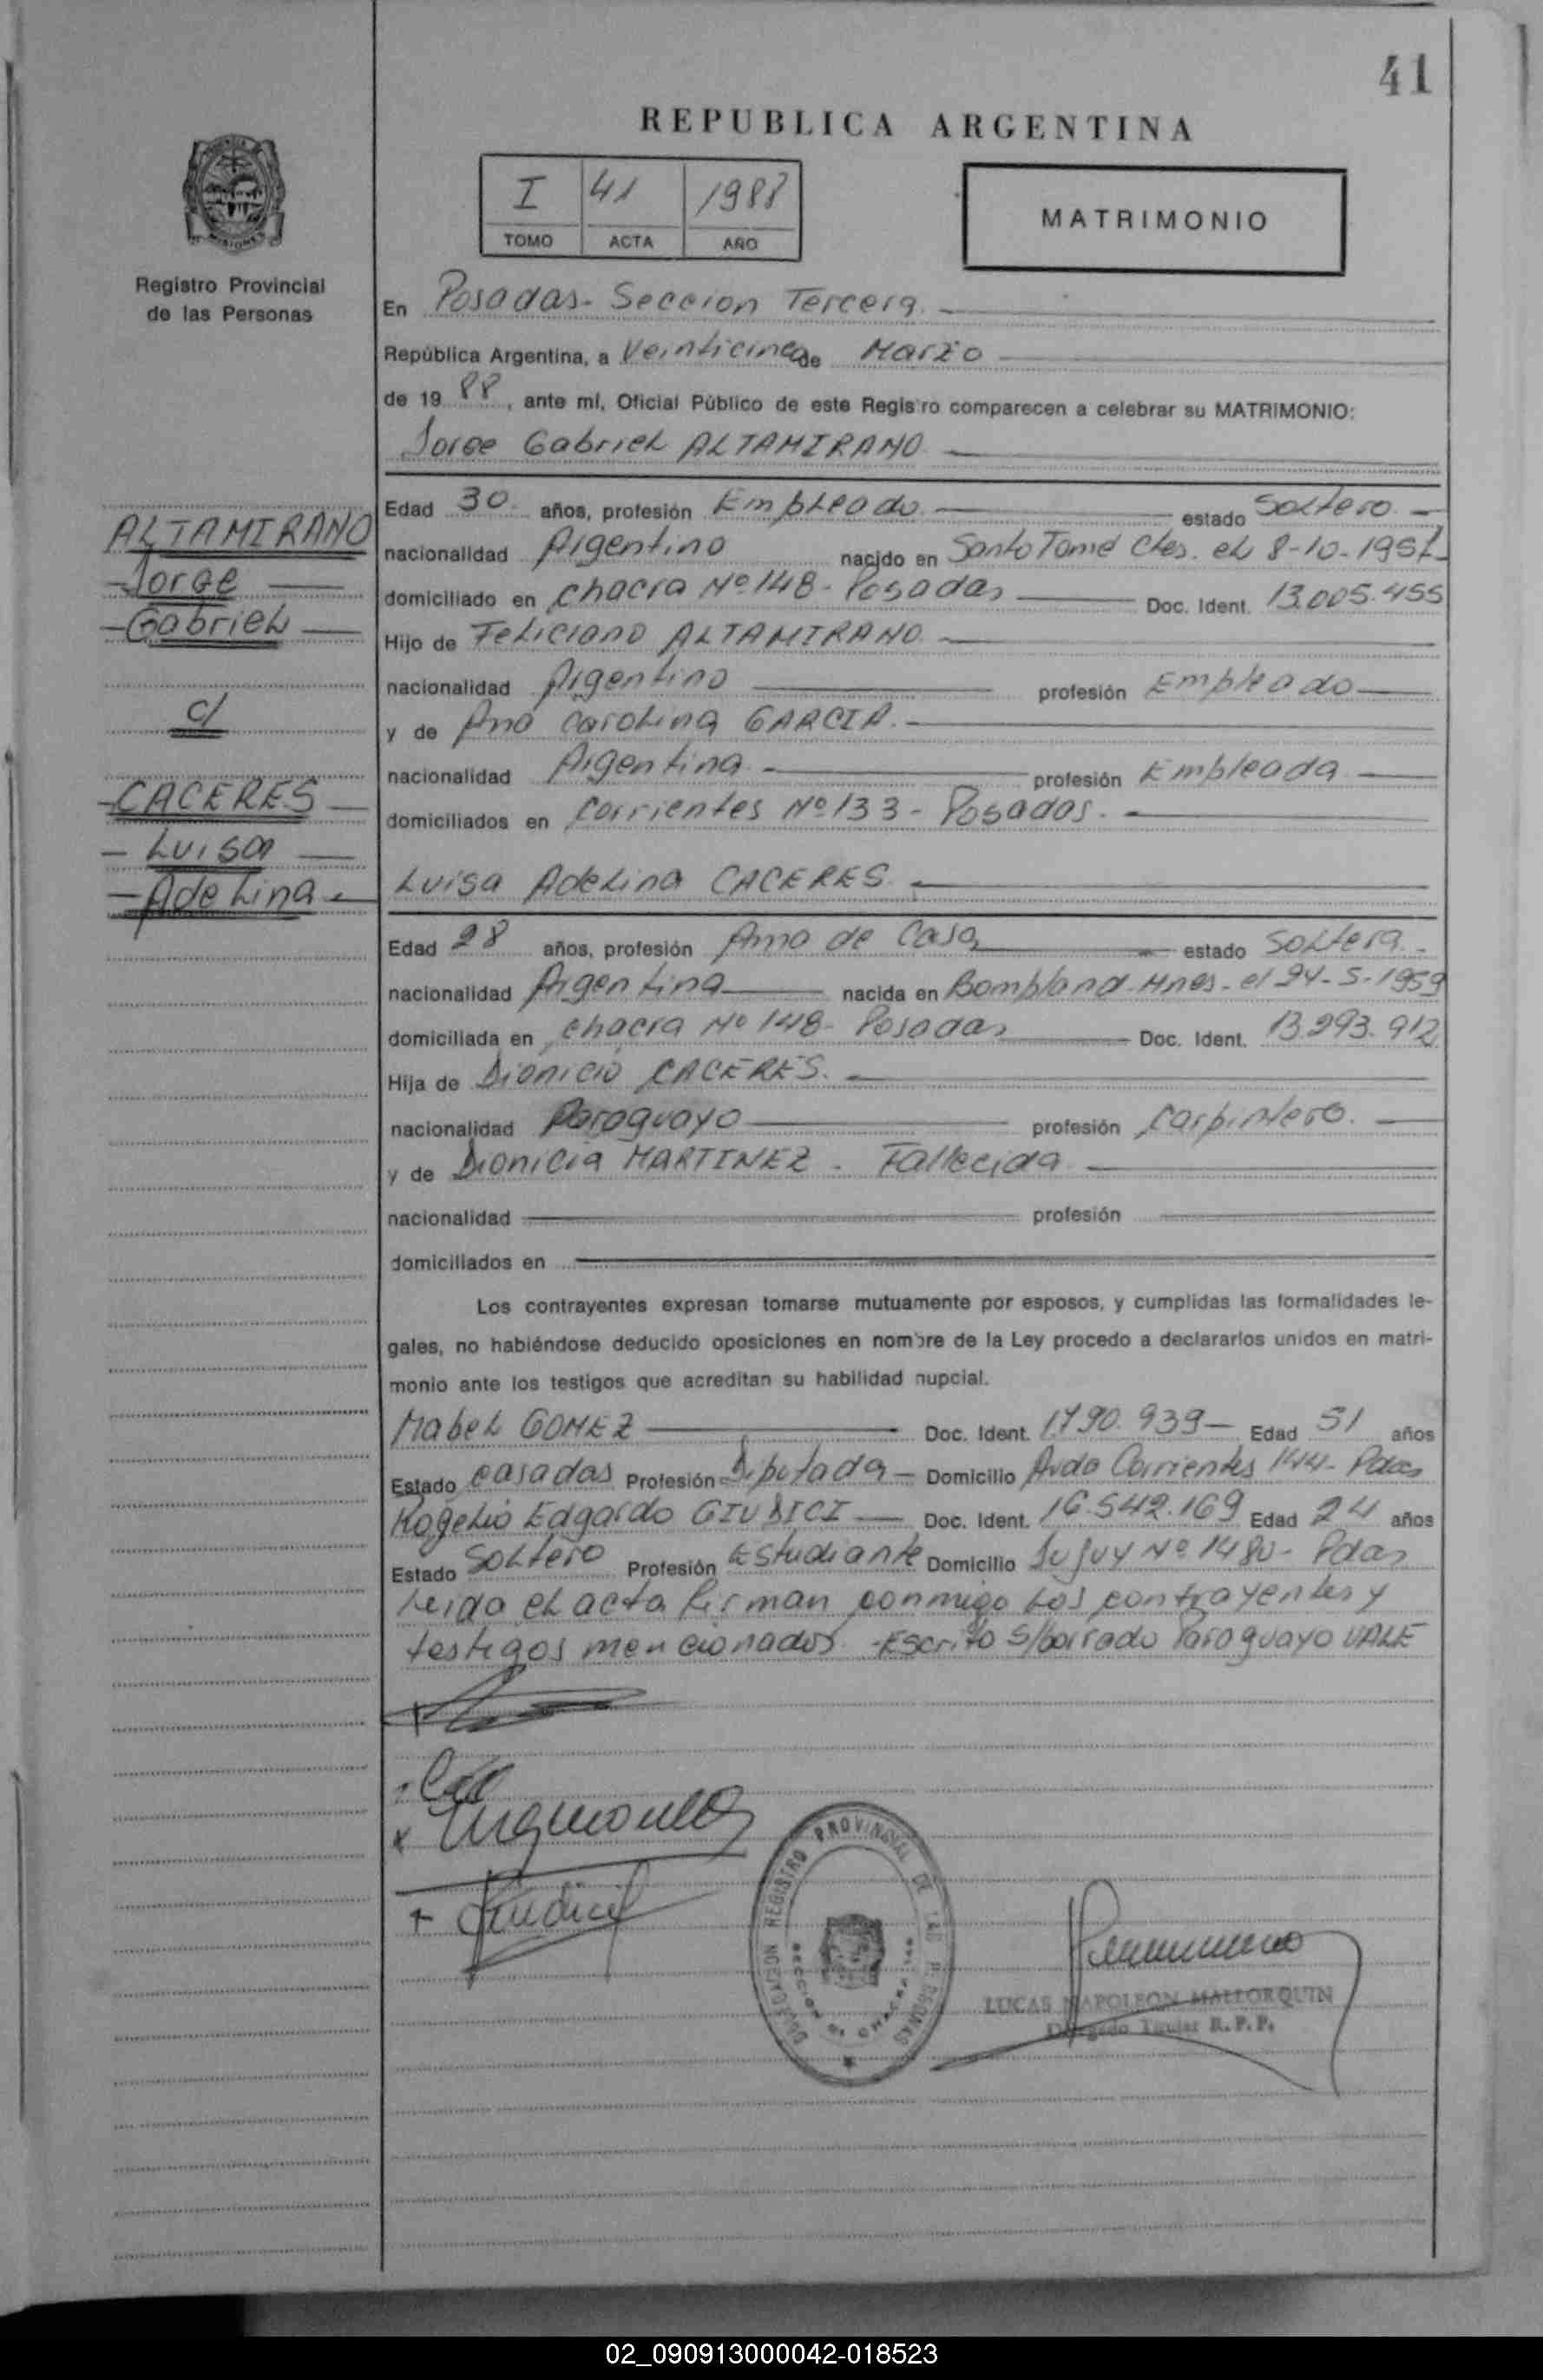 41
REPUBLICA ARGENTINA
I 41 1988
TOMO ACTA AÑO
MATRIMONIO
MISIONES
Registro Provincial
de las Personas
En Posadas - Seccion Tercera
República Argentina, a Veinticinco de Marzo
de 19 88, ante mí, Oficial Público de este Registro comparecen a celebrar su MATRIMONIO:
Jorge Gabriel ALTAMIRANO
ALTAMIRANO
Jorge
Gabriel
c/
CACERES
Luisa
Adelina
Edad 30 años, profesión Empleado estado Soltero
nacionalidad Argentino nacido en Santo Tomé Ctes. el 8-10-1957
domiciliado en Chacra Nº 148 - Posadas Doc. Ident. 13.005.455
Hijo de Feliciano ALTAMIRANO
nacionalidad Argentino profesión Empleado
y de Ana Carolina GARCIA.
nacionalidad Argentina profesión Empleada
domiciliados en Corrientes Nº 133 - Posadas.
Luisa Adelina CACERES
Edad 28 años, profesión Ama de Casa estado Soltera
nacionalidad Argentina nacida en Bompland Mnes. el 24-5-1959
domiciliada en Chacra Nº 148 - Posadas Doc. Ident. 13.293.912
Hija de Dionicio CACERES.
nacionalidad Paraguayo profesión Carpintero.
y de Dionicia MARTINEZ - Fallecida
nacionalidad profesión
domiciliados en
Los contrayentes expresan tomarse mutuamente por esposos, y cumplidas las formalidades le-
gales, no habiéndose deducido oposiciones en nombre de la Ley procedo a declararlos unidos en matri-
monio ante los testigos que acreditan su habilidad nupcial.
Mabel GOMEZ Doc. Ident. 1.790.939 Edad 51 años
Estado casadas Profesión Diputada Domicilio Avda Corrientes 144 - Pdas
Rogelio Edgardo GIUDICI Doc. Ident. 16.542.169 Edad 24 años
Estado Soltero Profesión Estudiante Domicilio Jujuy Nº 1480 - Pdas
Leida el acta firman conmigo los contrayentes y
testigos mencionados. - Escrito s/borrado Paraguayo VALE
DELEGACION REGISTRO PROVINCIAL DE LAS PERSONAS
LUCAS NAPOLEON MALLORQUIN
Delegado Titular R.P.P.
02_090913000042-018523